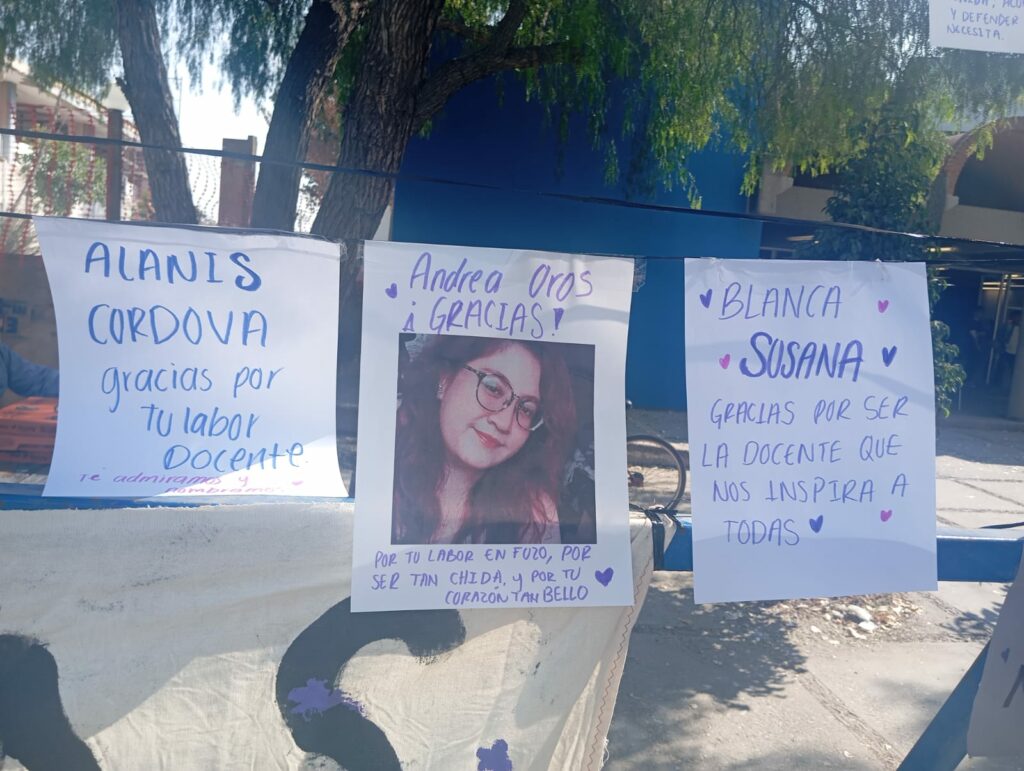 ALANIS
CORDOVA
gracias por
tu labor
Docente
Te admiramos y
nombramos
Andrea Oros
¡GRACIAS!
POR TU LABOR EN FUZO, POR
SER TAN CHIDA, y POR TU
CORAZÓN TAN BELLO
BLANCA
SUSANA
GRACIAS POR SER
LA DOCENTE QUE
NOS INSPIRA A
TODAS
Y DEFENDER
NECESITA.